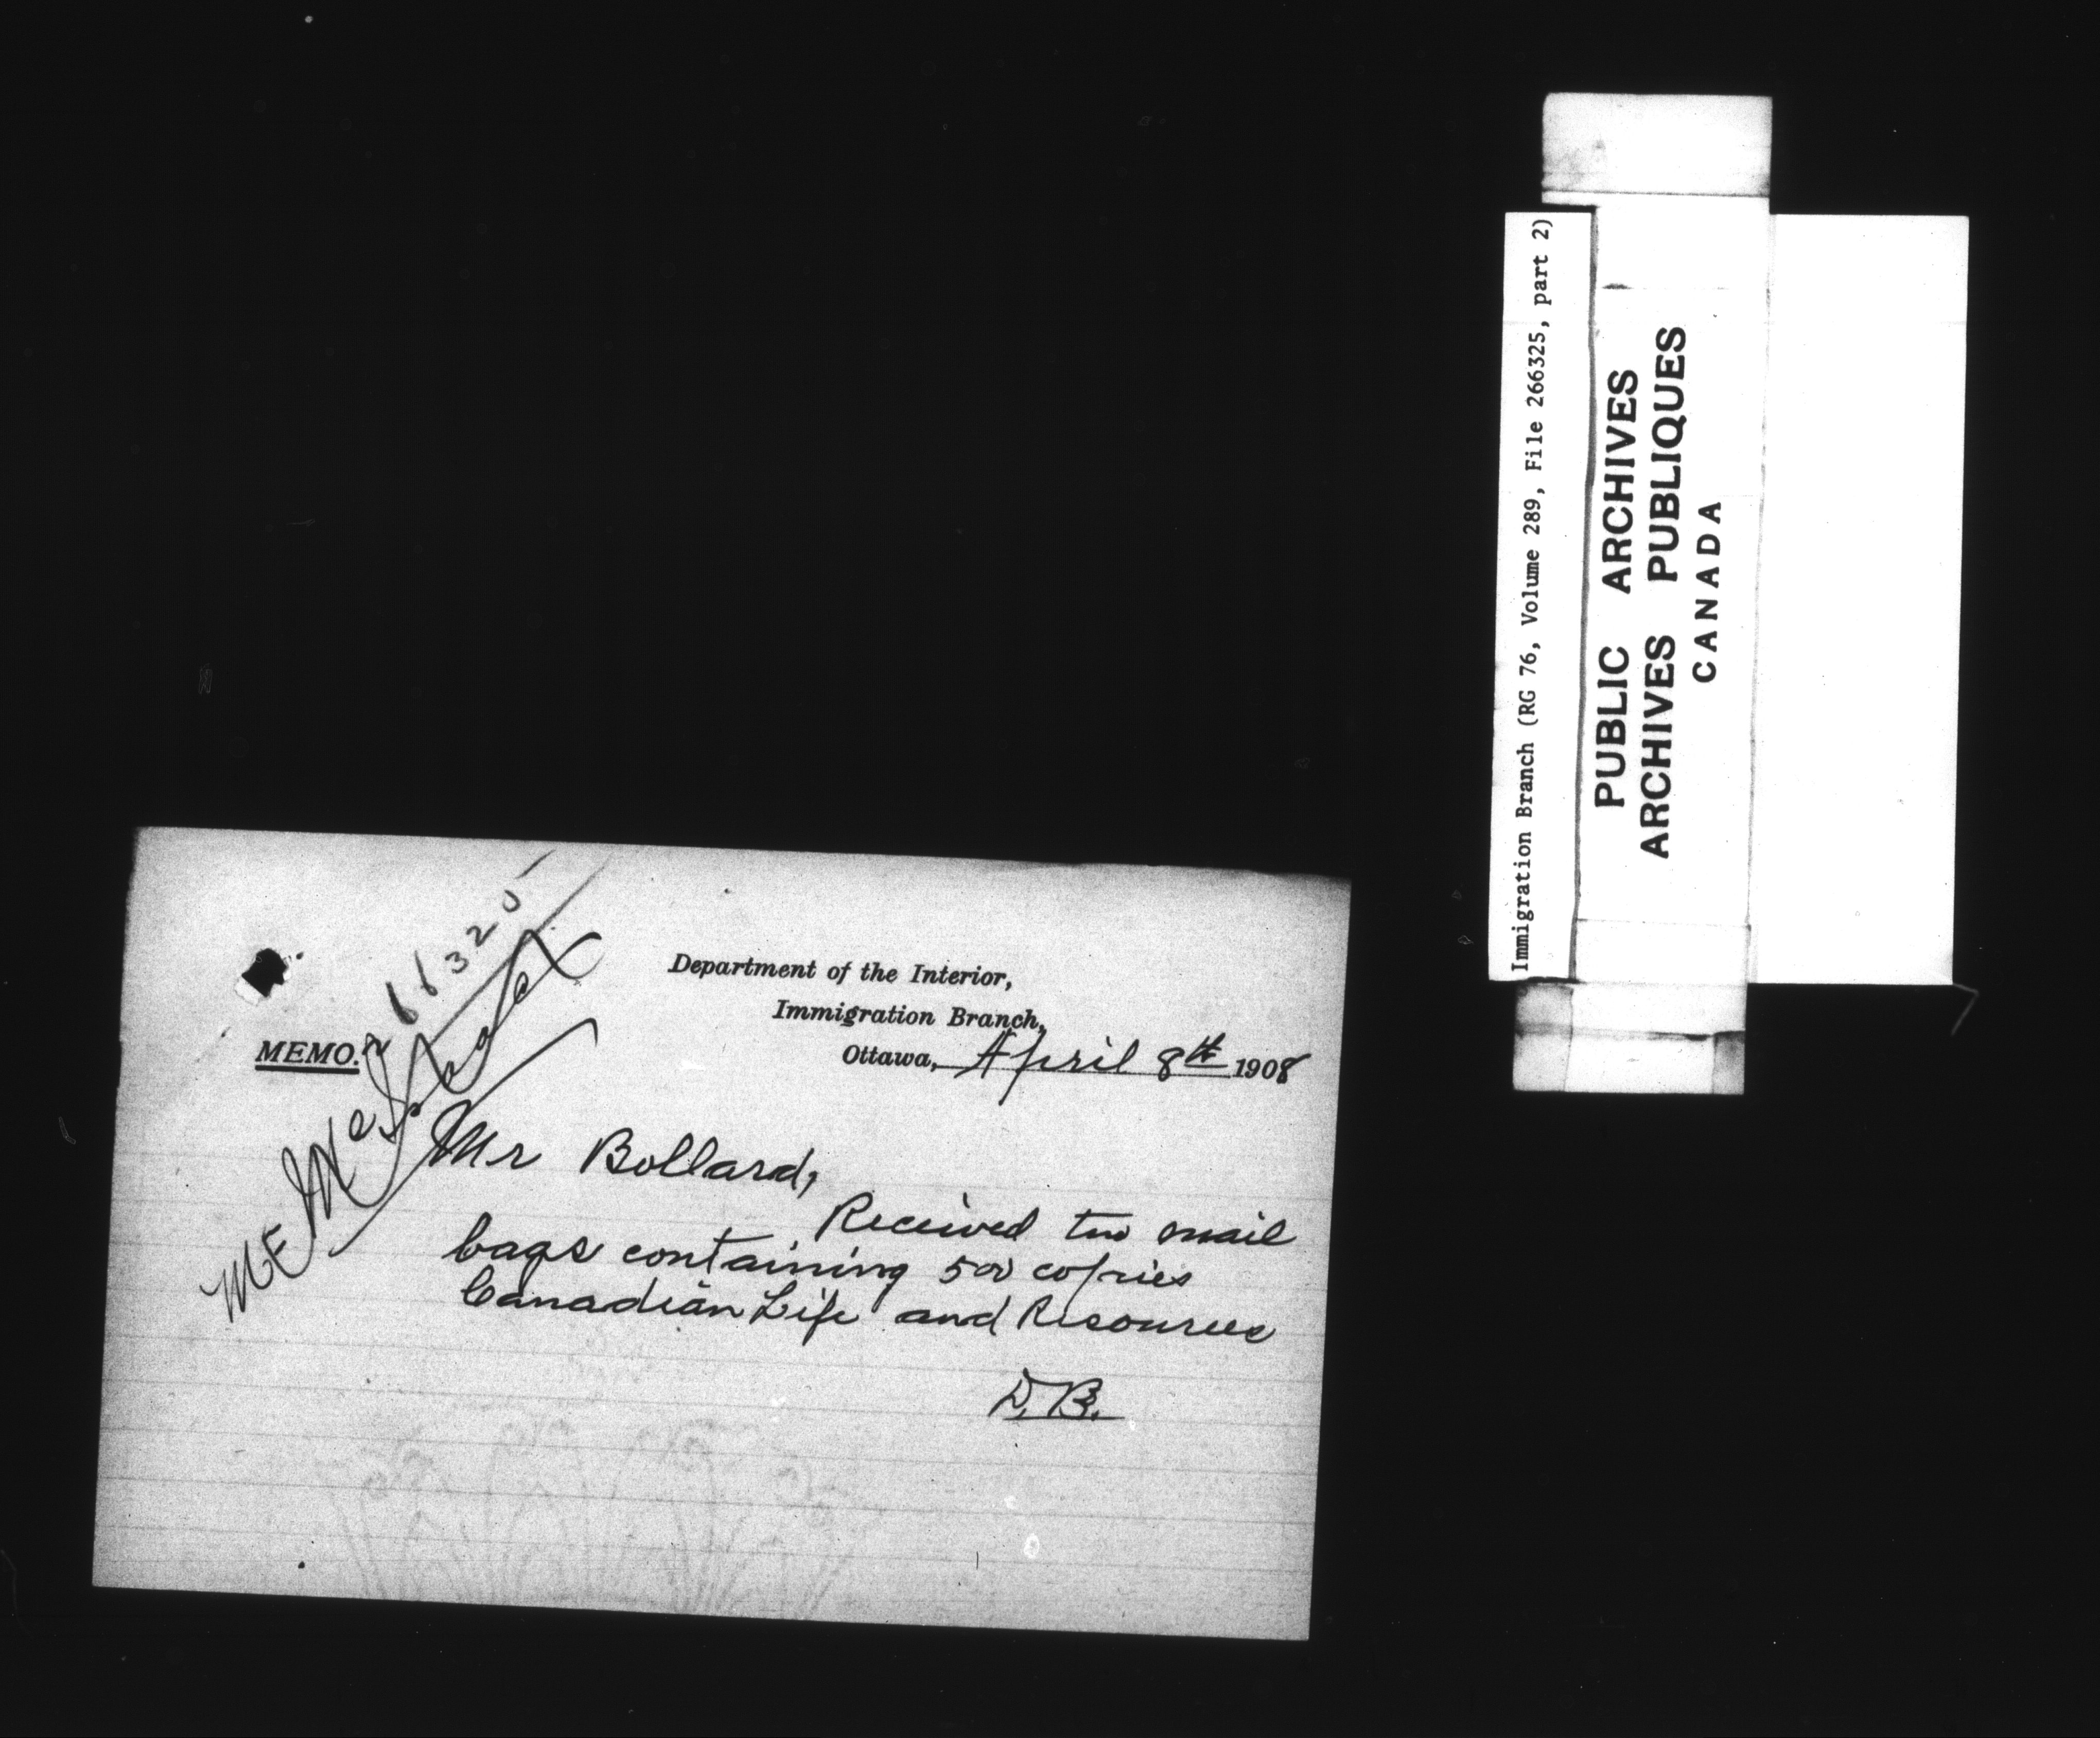 Department of the Interior,
Immigration Branch,
MEMO.
Ottawa, April 8th 1908
266325
Mr Bollard,
Received two mail
bags containing 500 copies
Canadian Life and Resources
D.B.
Immigration Branch (RG 76, Volume 289, File 266325, part 2)
PUBLIC ARCHIVES
ARCHIVES PUBLIQUES
CANADA